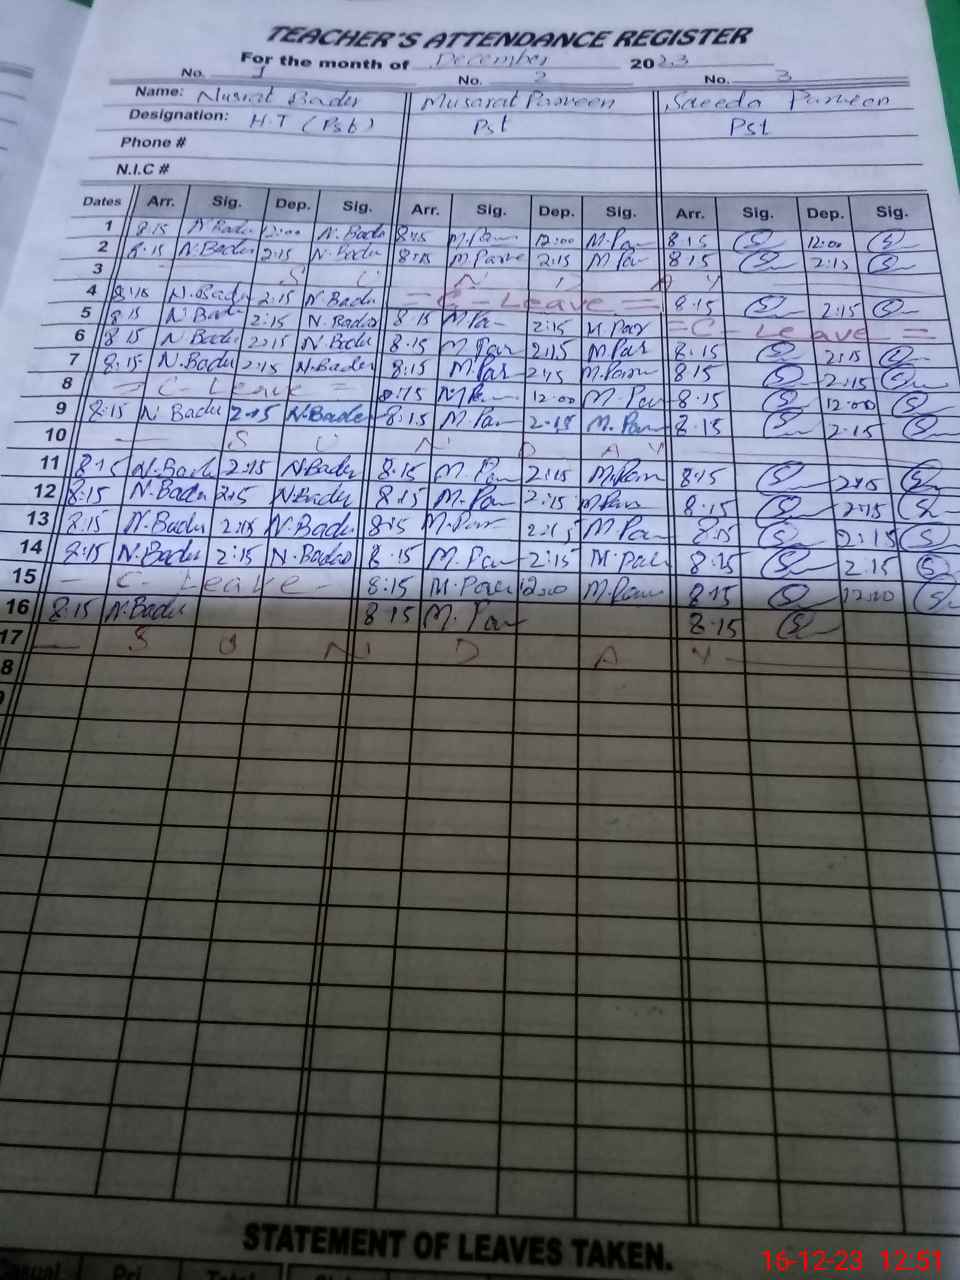 TEACHER'S ATTENDANCE REGISTER
For the month of December 2023
No. 1 No. 2 No. 3
Name: Nusrat Bader Musarat Parveen Saeeda Parveen
Designation: H.T (Pst) Pst Pst
Phone #
N.I.C #
Dates Arr. Sig. Dep. Sig. Arr. Sig. Dep. Sig. Arr. Sig. Dep. Sig.
1 8:15 N.Bader 12:00 N.Bader 8:15 M.Par 12:00 M.Par 8:15 12:00
2 8:15 N.Bader 2:15 N.Bader 8:15 M.Parve 2:15 M.Par 8:15 2:15
3 S U N D A Y
4 8:15 N.Bader 2:15 N.Bader = C - Leave = 8:15 2:15
5 8:15 N.Bader 2:15 N.Bader 8:15 M.Par 2:15 M.Par = C - Leave =
6 8:15 N.Bader 2:15 N.Bader 8:15 M.Par 2:15 M.Par 8:15 2:15
7 8:15 N.Bader 2:15 N.Bader 8:15 M.Par 2:15 M.Parm 8:15 2:15
8 = C - Leave = 8:15 M.Par 12:00 M.Par 8:15 12:00
9 8:15 N.Bader 2:15 N.Bader 8:15 M.Par 2:15 M.Par 8:15 2:15
10 — S U N D A Y
11 8:15 N.Bader 2:15 N.Bader 8:15 M.Par 2:15 M.Parm 8:15 2:15
12 8:15 N.Bader 2:15 N.Bader 8:15 M.Par 2:15 M.Par 8:15 2:15
13 8:15 N.Bader 2:15 N.Bader 8:15 M.Par 2:15 M.Par 8:15 2:15
14 8:15 N.Bader 2:15 N.Bader 8:15 M.Par 2:15 M.Par 8:15 2:15
15 - C - Leave - 8:15 M.Par 12:00 M.Par 8:15 12:00
16 8:15 N.Bader 8:15 M.Par 8:15
17 — S U N D A Y —
8
9
STATEMENT OF LEAVES TAKEN.
Total
16-12-23 12:51